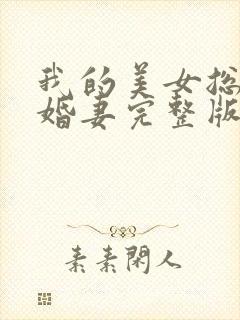 我的美女总
婚妻完整版
素素閑人